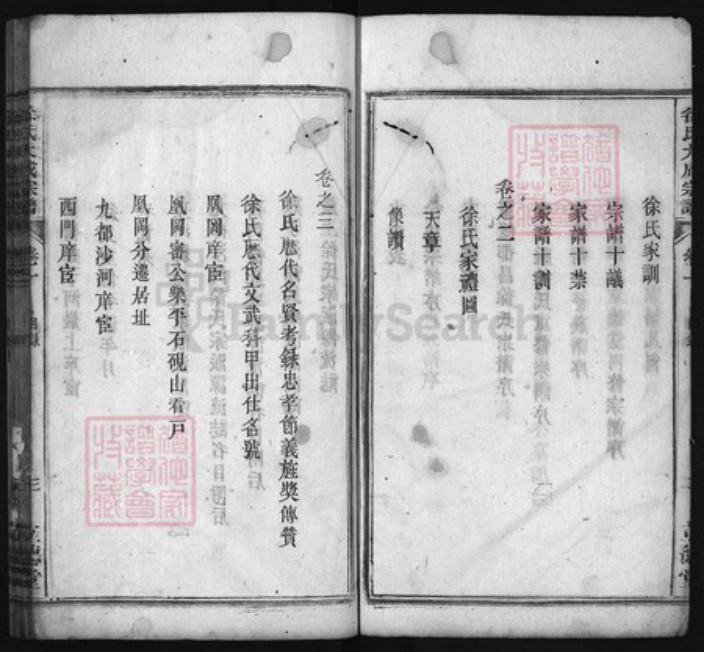 徐氏家訓
宗譜十議
家譜十禁
家譜十訓
卷之二
徐氏家禮圖
天章
像讚
卷之三
徐氏歷代名賢考錄忠孝節義旌奬傳贊
徐氏歷代文武科甲出仕名號
鳳岡庠宦
鳳岡審公樂平石硯山看戸
鳳岡分遷居址
九都沙河庠宦
西門庠宦
徐氏大成宗譜
卷一
FamilySearch